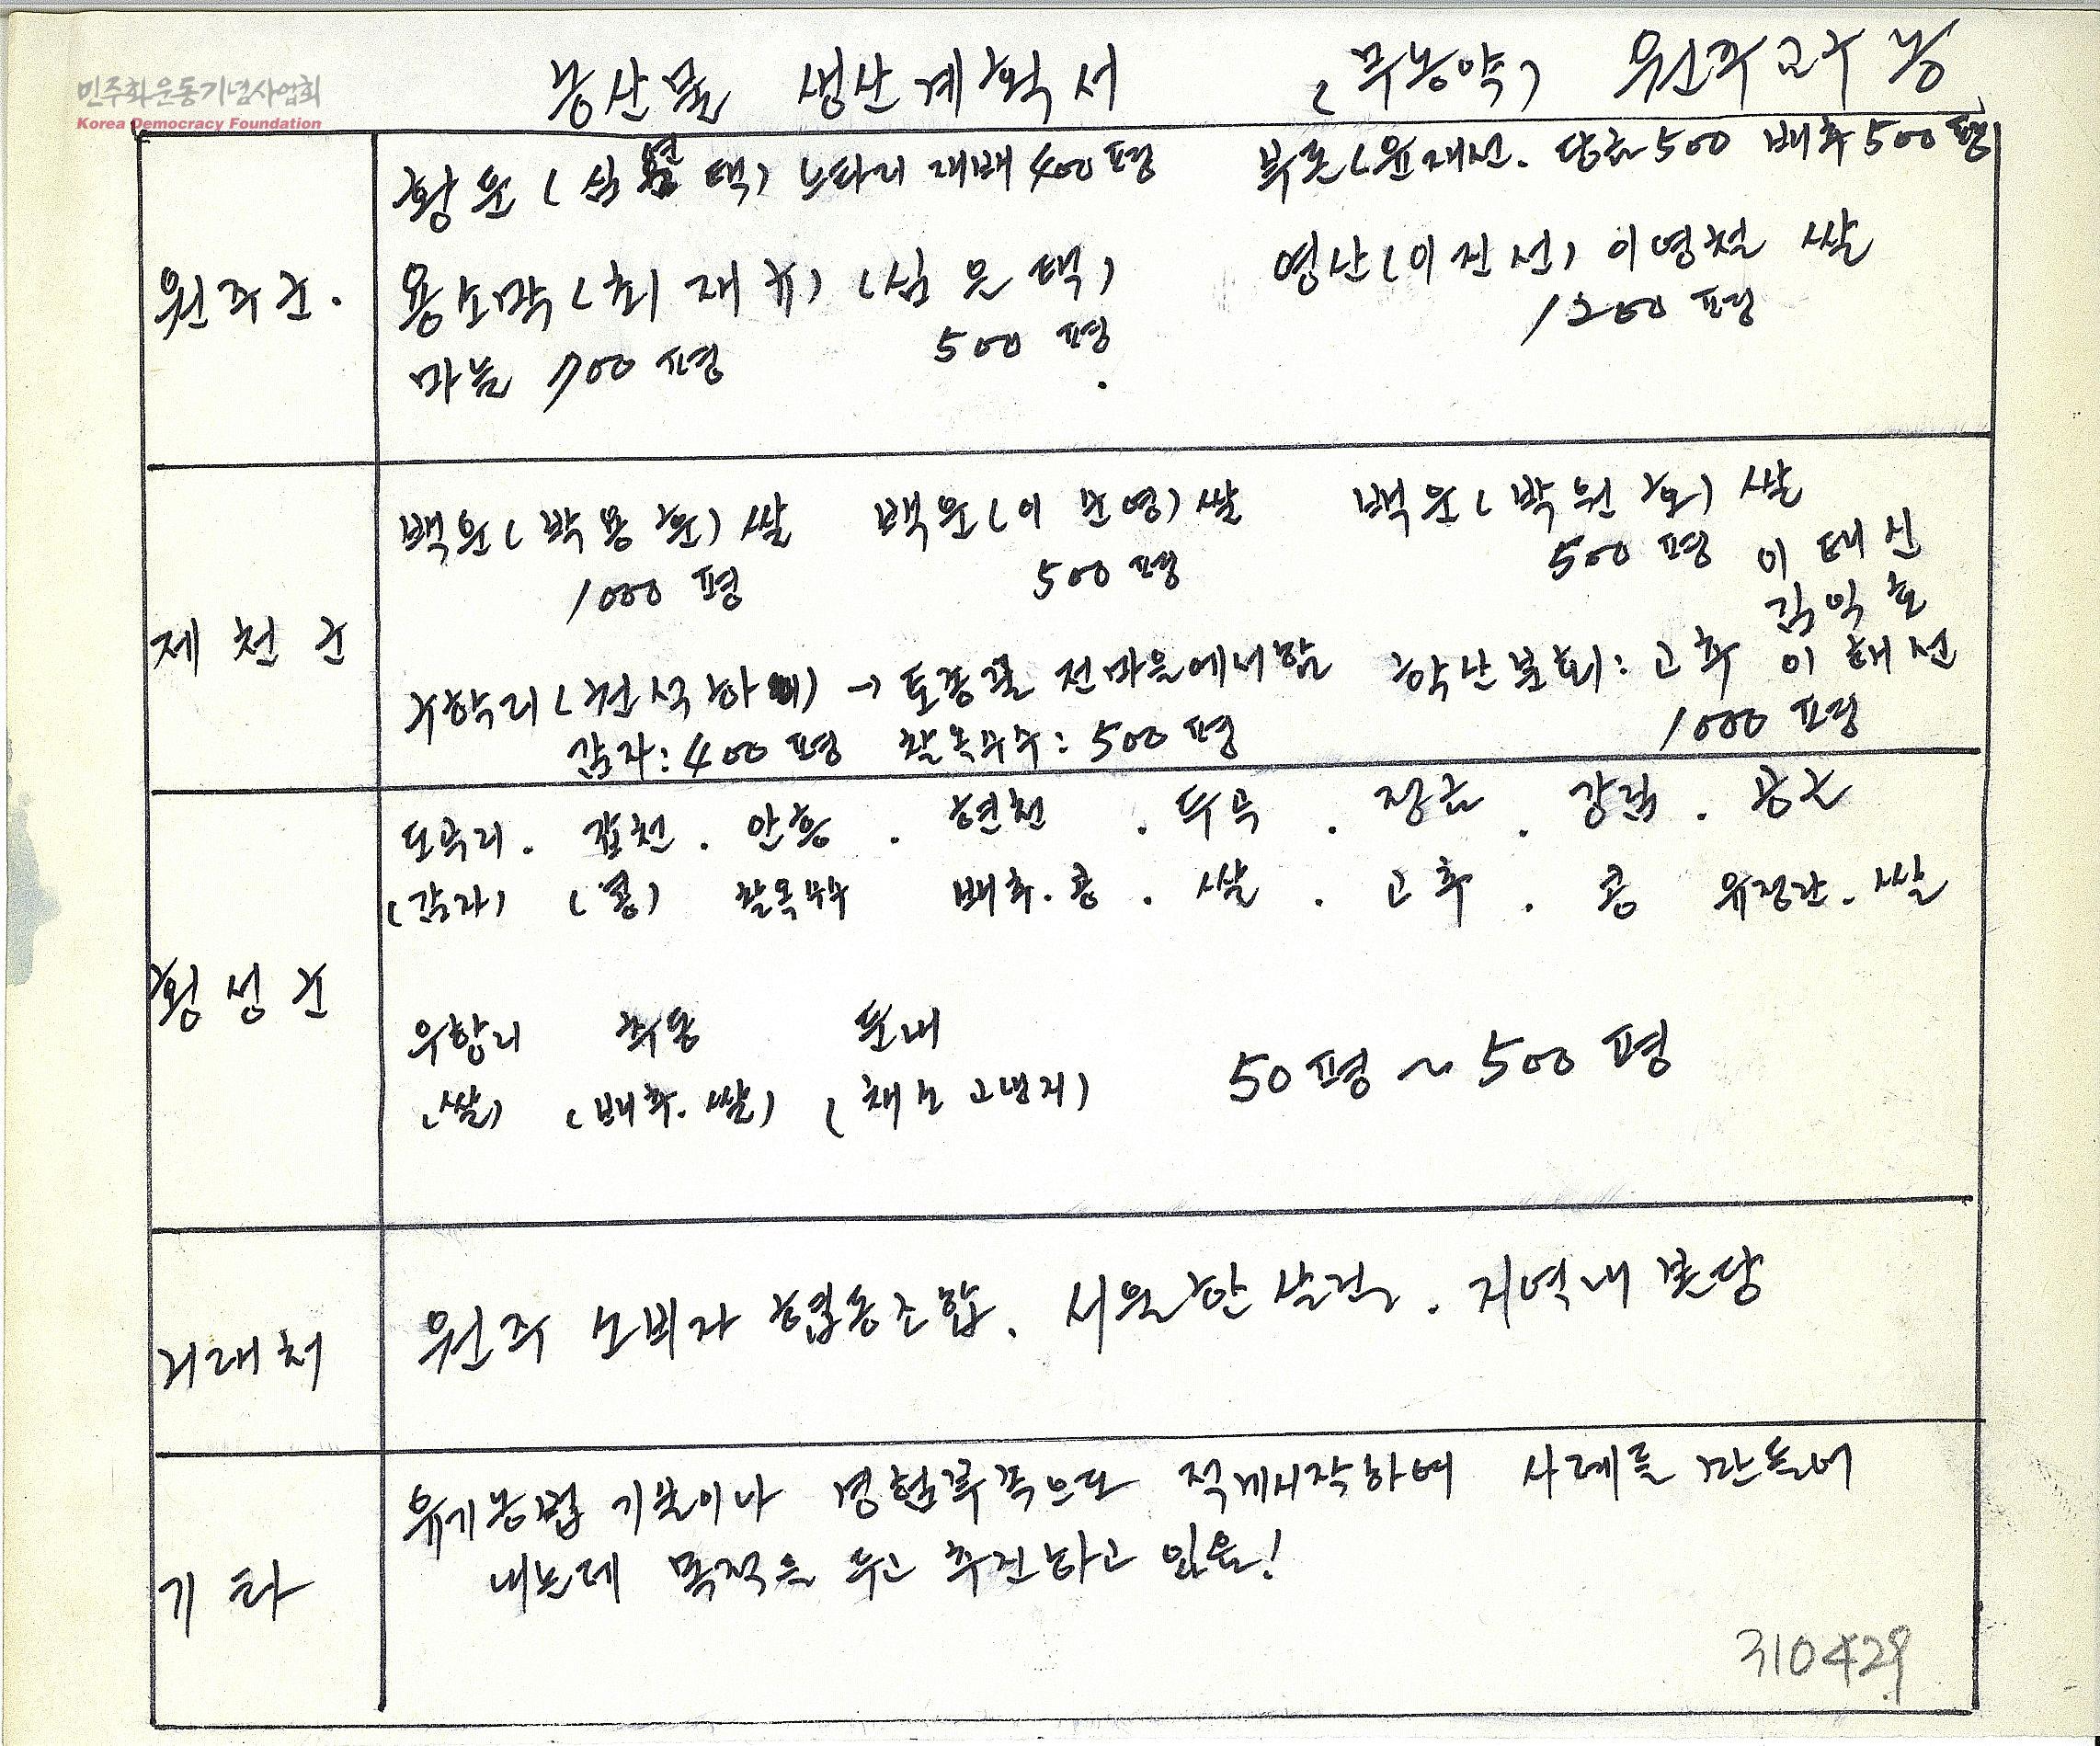 민주화운동기념사업회
Korea Democracy Foundation
농산물 생산계획서 (무농약) 원주교구 농
원주군.
황둔 (심 택) 느타리 재배 400평 부론(윤재선. 당근 500 배추 500평
용소막(최재규) (심은택) 영산(이진선) 이영철 쌀
마늘 700평 500평 1200평
제천군
백운(박용훈) 쌀 백운(이문영) 쌀 백운(박원호) 쌀
1000평 500평 500평 이태신
김익호
(천석하 ) → 토종꿀 전마을에서함 학산분회: 고추 이해선
감자: 400평 찰옥수수: 500평 1000평
횡성군
도곡리. 갑천. 안흥. 현천. 두곡. 정금. 강림. 공근
(감자) (콩) 찰옥수수 배추.콩. 쌀. 고추. 콩 유정란.쌀
우항리 추동 둔내
(쌀) (배추.쌀) (채소 고냉지) 50평 ~ 500평
거래처
원주 소비자 협동조합. 서울한살림. 지역내 본당
기타
유기농법 기술이나 경험부족으로 적게시작하여 사례를 만들어
내는데 목적을 두고 추진하고 있음!
310429